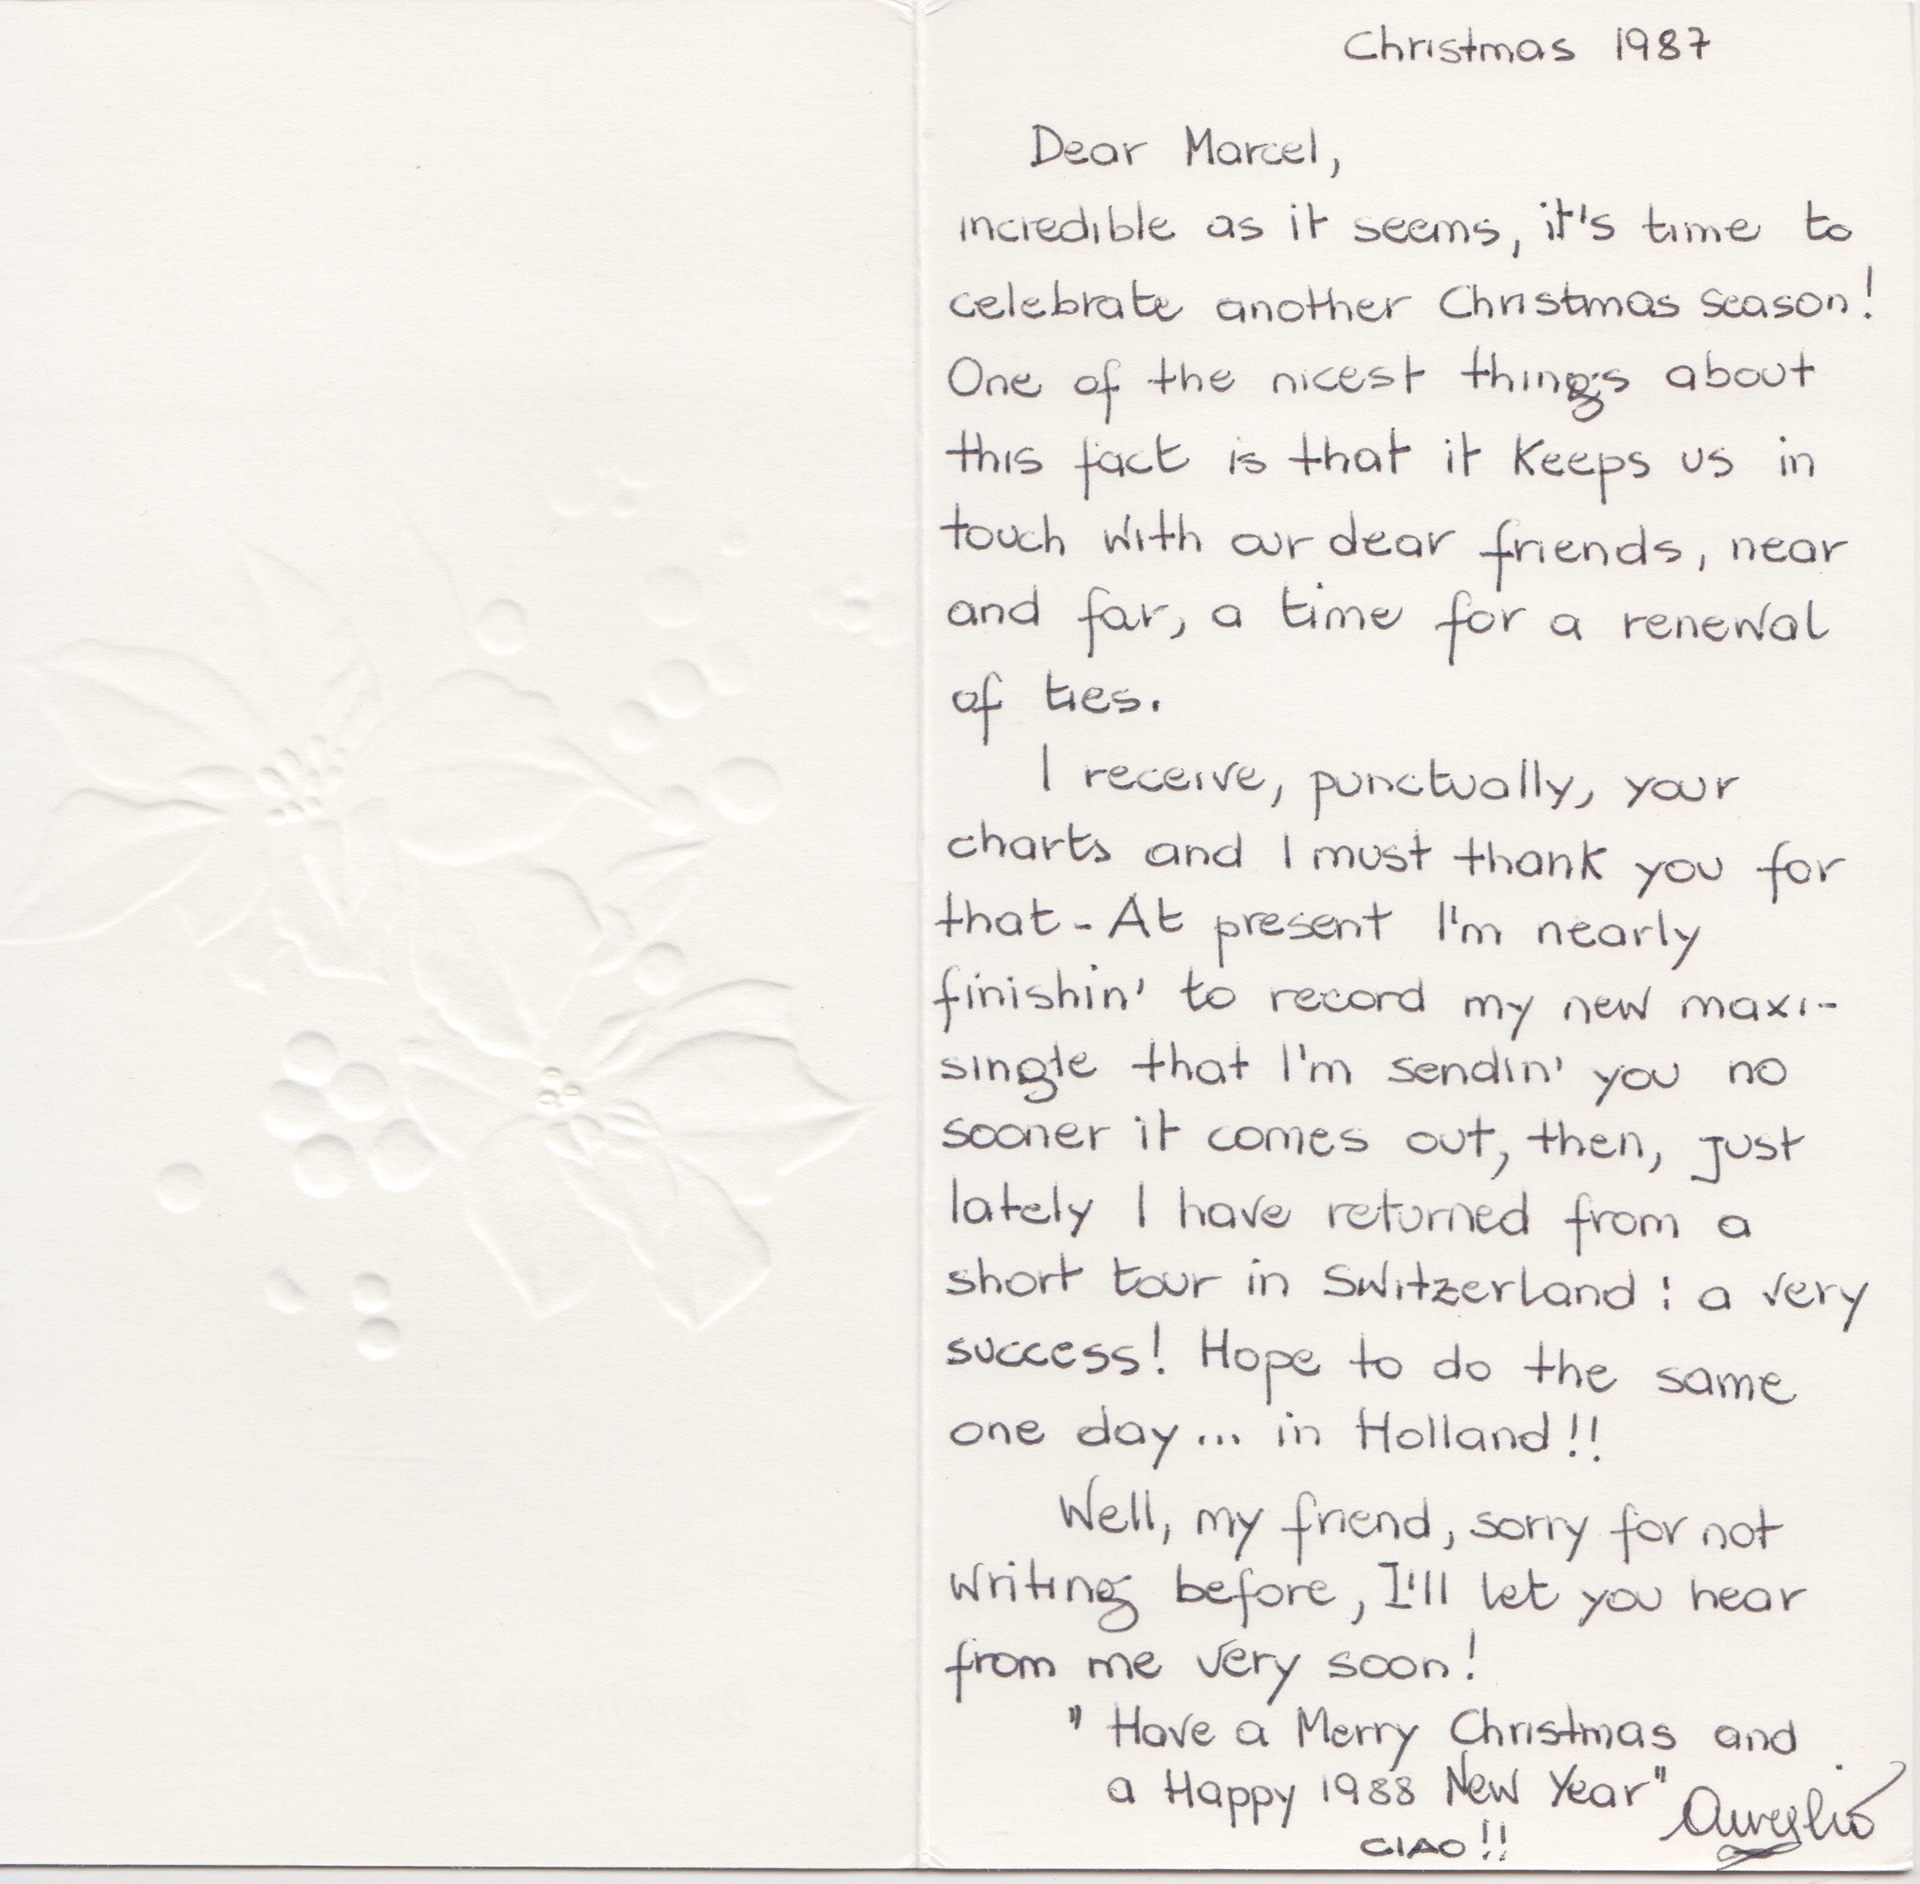 Christmas 1987
Dear Marcel,
incredible as it seems, it's time to
celebrate another Christmas season!
One of the nicest things about
this fact is that it keeps us in
touch with our dear friends, near
and far, a time for a renewal
of ties.
I receive, punctually, your
charts and I must thank you for
that - At present I'm nearly
finishin' to record my new maxi-
single that I'm sendin' you no
sooner it comes out, then, just
lately I have returned from a
short tour in Switzerland : a very
success! Hope to do the same
one day... in Holland!!
Well, my friend, sorry for not
writing before, I'll let you hear
from me very soon!
" Have a Merry Christmas and
a Happy 1988 New Year" Aurelio
CIAO!!